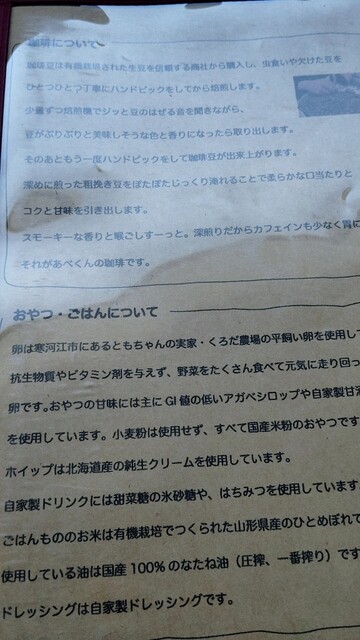 珈琲について
珈琲豆は有機栽培された生豆を信頼する商社から購入し、虫食いや欠けた豆を
ひとつひとつ丁寧にハンドピックをしてから焙煎します。
少量ずつ焙煎機でジッと豆のはぜる音を聞きながら、
豆がぷりぷりと美味しそうな色と香りになったら取り出します。
そのあともう一度ハンドピックをして珈琲豆が出来上がります。
深めに煎った粗挽き豆をぽたぽたじっくり淹れることで柔らかな口当たりと
コクと甘味を引き出します。
スモーキーな香りと喉ごしすーっと。深煎りだからカフェインも少なく胃に
それがあべくんの珈琲です。
おやつ・ごはんについて
卵は寒河江市にあるともちゃんの実家・くろだ農場の平飼い卵を使用して
抗生物質やビタミン剤を与えず、野菜をたくさん食べて元気に走り回っ
卵です。おやつの甘味には主に GI 値の低いアガベシロップや自家製甘
を使用しています。小麦粉は使用せず、すべて国産米粉のおやつです
ホイップは北海道産の純生クリームを使用しています。
自家製ドリンクには甜菜糖の氷砂糖や、はちみつを使用しています
ごはんもののお米は有機栽培でつくられた山形県産のひとめぼれで
使用している油は国産 100% のなたね油（圧搾、一番搾り）です
ドレッシングは自家製ドレッシングです。